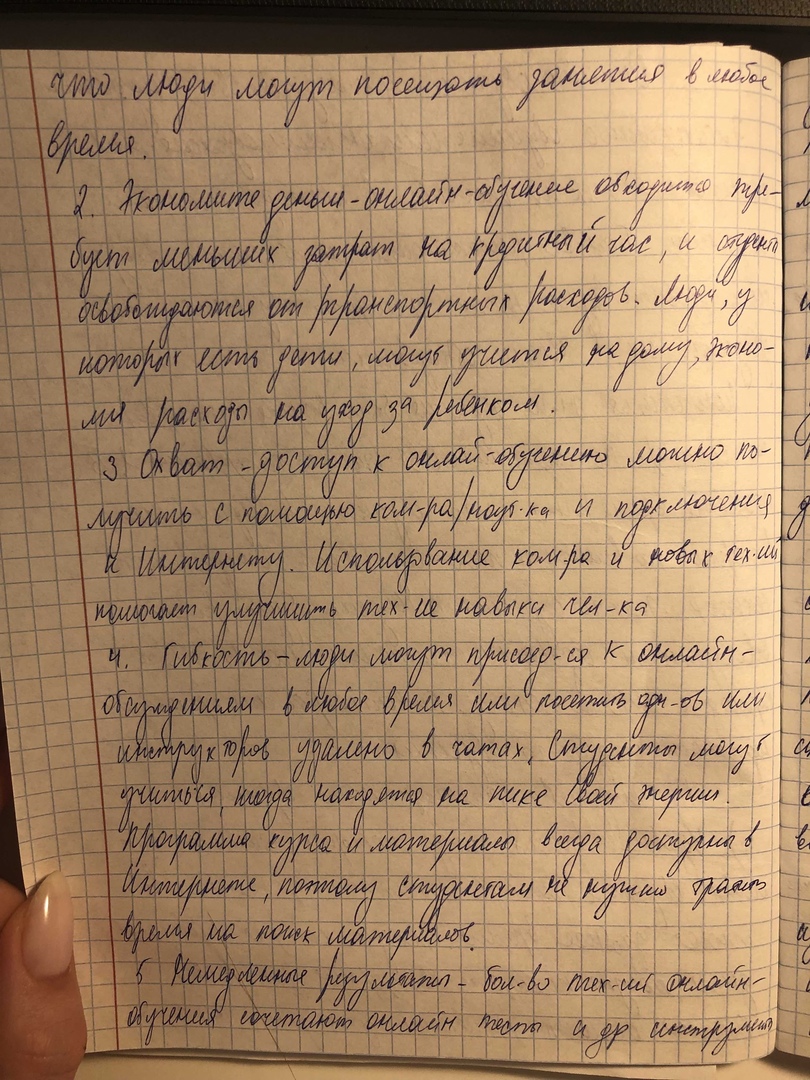 что люди могут посещать занятия в любое
время.
2. Экономите деньги - онлайн-обучение обходится тре-
бует меньших затрат на кредитный час, и студенты
освобождаются от транспортных расходов. Люди, у
которых есть дети, могут учится на дому, эконо-
мя расходы на уход за ребенком.
3 Охват - доступ к онлай-обучению можно по-
лучить с помощью ком-ра/ноут-ка и подключения
к Интернету. Использование ком-ра и новых тех-ий
помогает улучшить тех-ие навыки чел-ка
4. Гибкость - люди могут присоед-ся к онлайн-
обсуждениям в любое время или посетить одн-ов или
инструкторов удалено в чатах. Студенты могут
учиться, когда находятся на пике своей энергии.
Программа курса и материалы всегда доступны в
Интернете, поэтому студентам не нужно тратить
время на поиск материалов.
5 Немедленные результаты - бол-во тех-ий онлайн-
обучения сочетают онлайн тесты и др инструменты